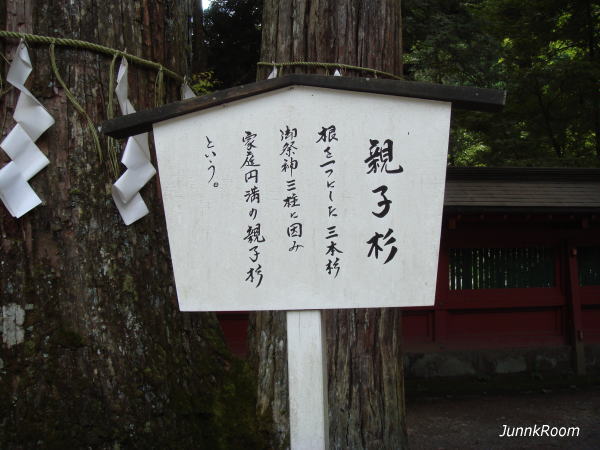 親子杉
根を一つにした三本杉
御祭神三柱に因み
家庭円満の親子杉
という。
JunnkRoom